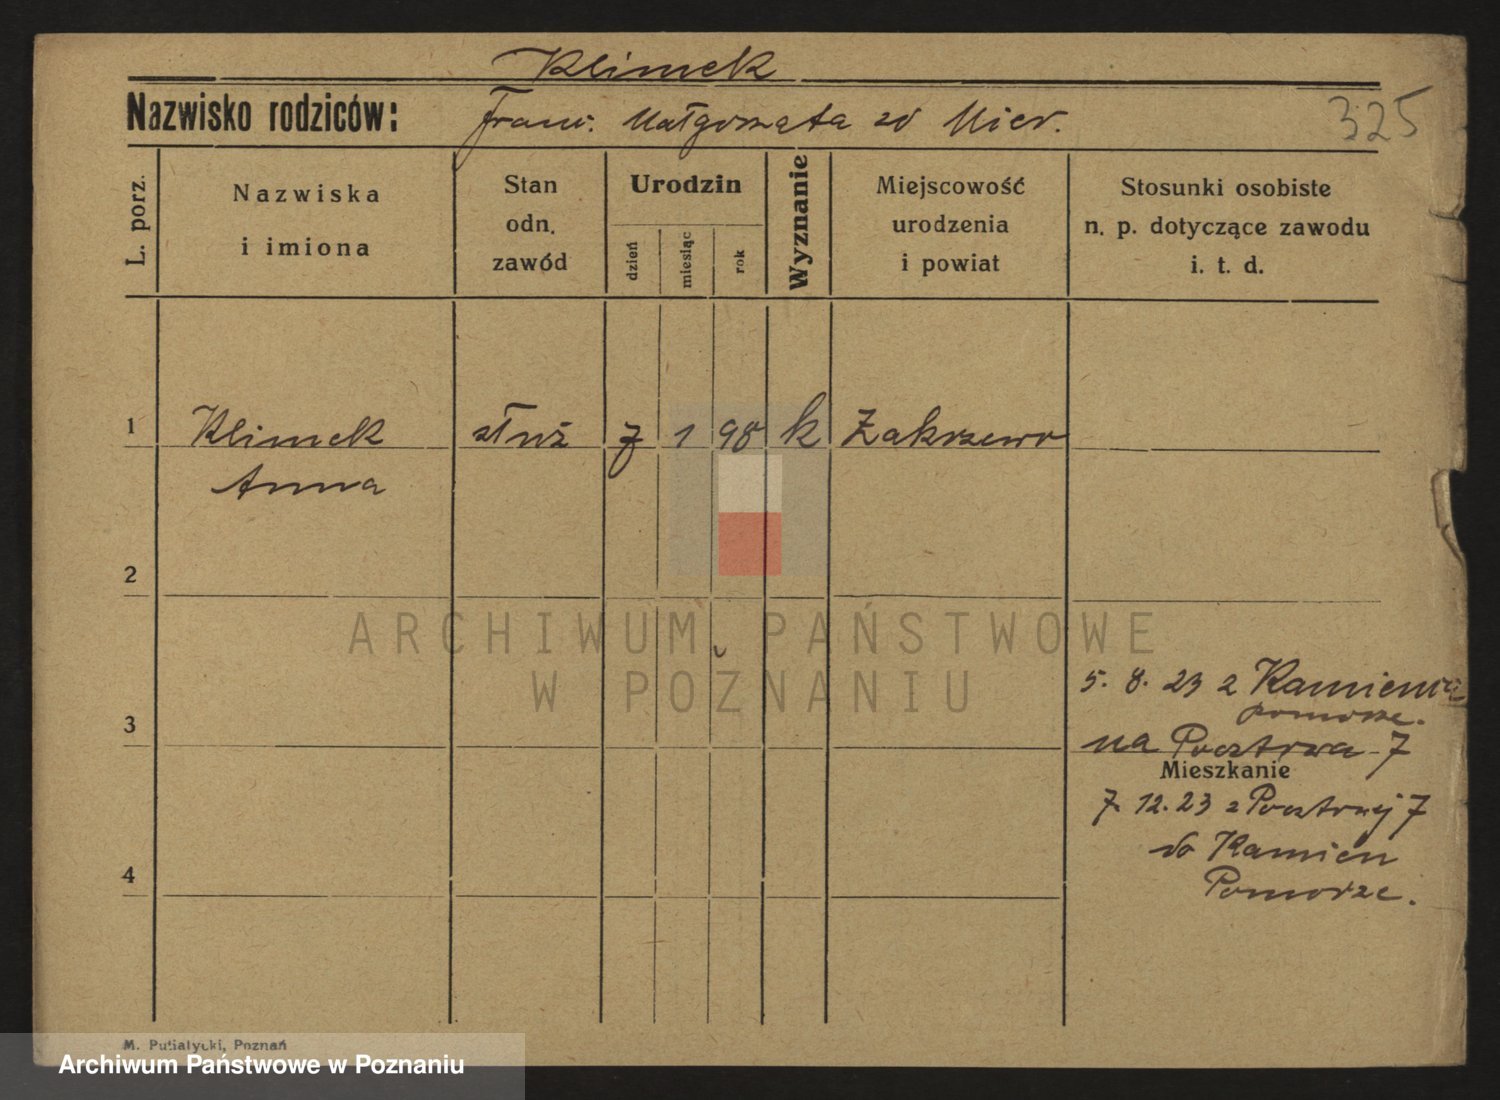 Klimek
Nazwisko rodziców: Franc. Małgorzata zd Mier.
325
L. porz.
Nazwiska
i imiona
Stan
odn.
zawód
Urodzin
dzień
miesiąc
rok
Wyznanie
Miejscowość
urodzenia
i powiat
Stosunki osobiste
n. p. dotyczące zawodu
i. t. d.
1 Klimek służ 7 1 98 k Zakrzewo
Anna
2
ARCHIWUM PAŃSTWOWE
W POZNANIU
5. 8. 23 z Kamienia
pomorze.
3
na Pocztowa 7
Mieszkanie
7. 12. 23 z Pocztowej 7
do Kamien
4
Pomorze.
M. Putiatycki, Poznań
Archiwum Państwowe w Poznaniu